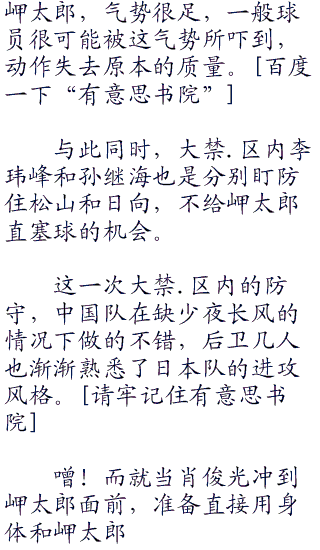 岬太郎，气势很足，一般球
员很可能被这气势所吓到，
动作失去原本的质量。[百度
一下“有意思书院”]
与此同时，大禁.区内李
玮峰和孙继海也是分别盯防
住松山和日向，不给岬太郎
直塞球的机会。
这一次大禁.区内的防
守，中国队在缺少夜长风的
情况下做的不错，后卫几人
也渐渐熟悉了日本队的进攻
风格。[请牢记住有意思书
院]
噌！而就当肖俊光冲到
岬太郎面前，准备直接用身
体和岬太郎